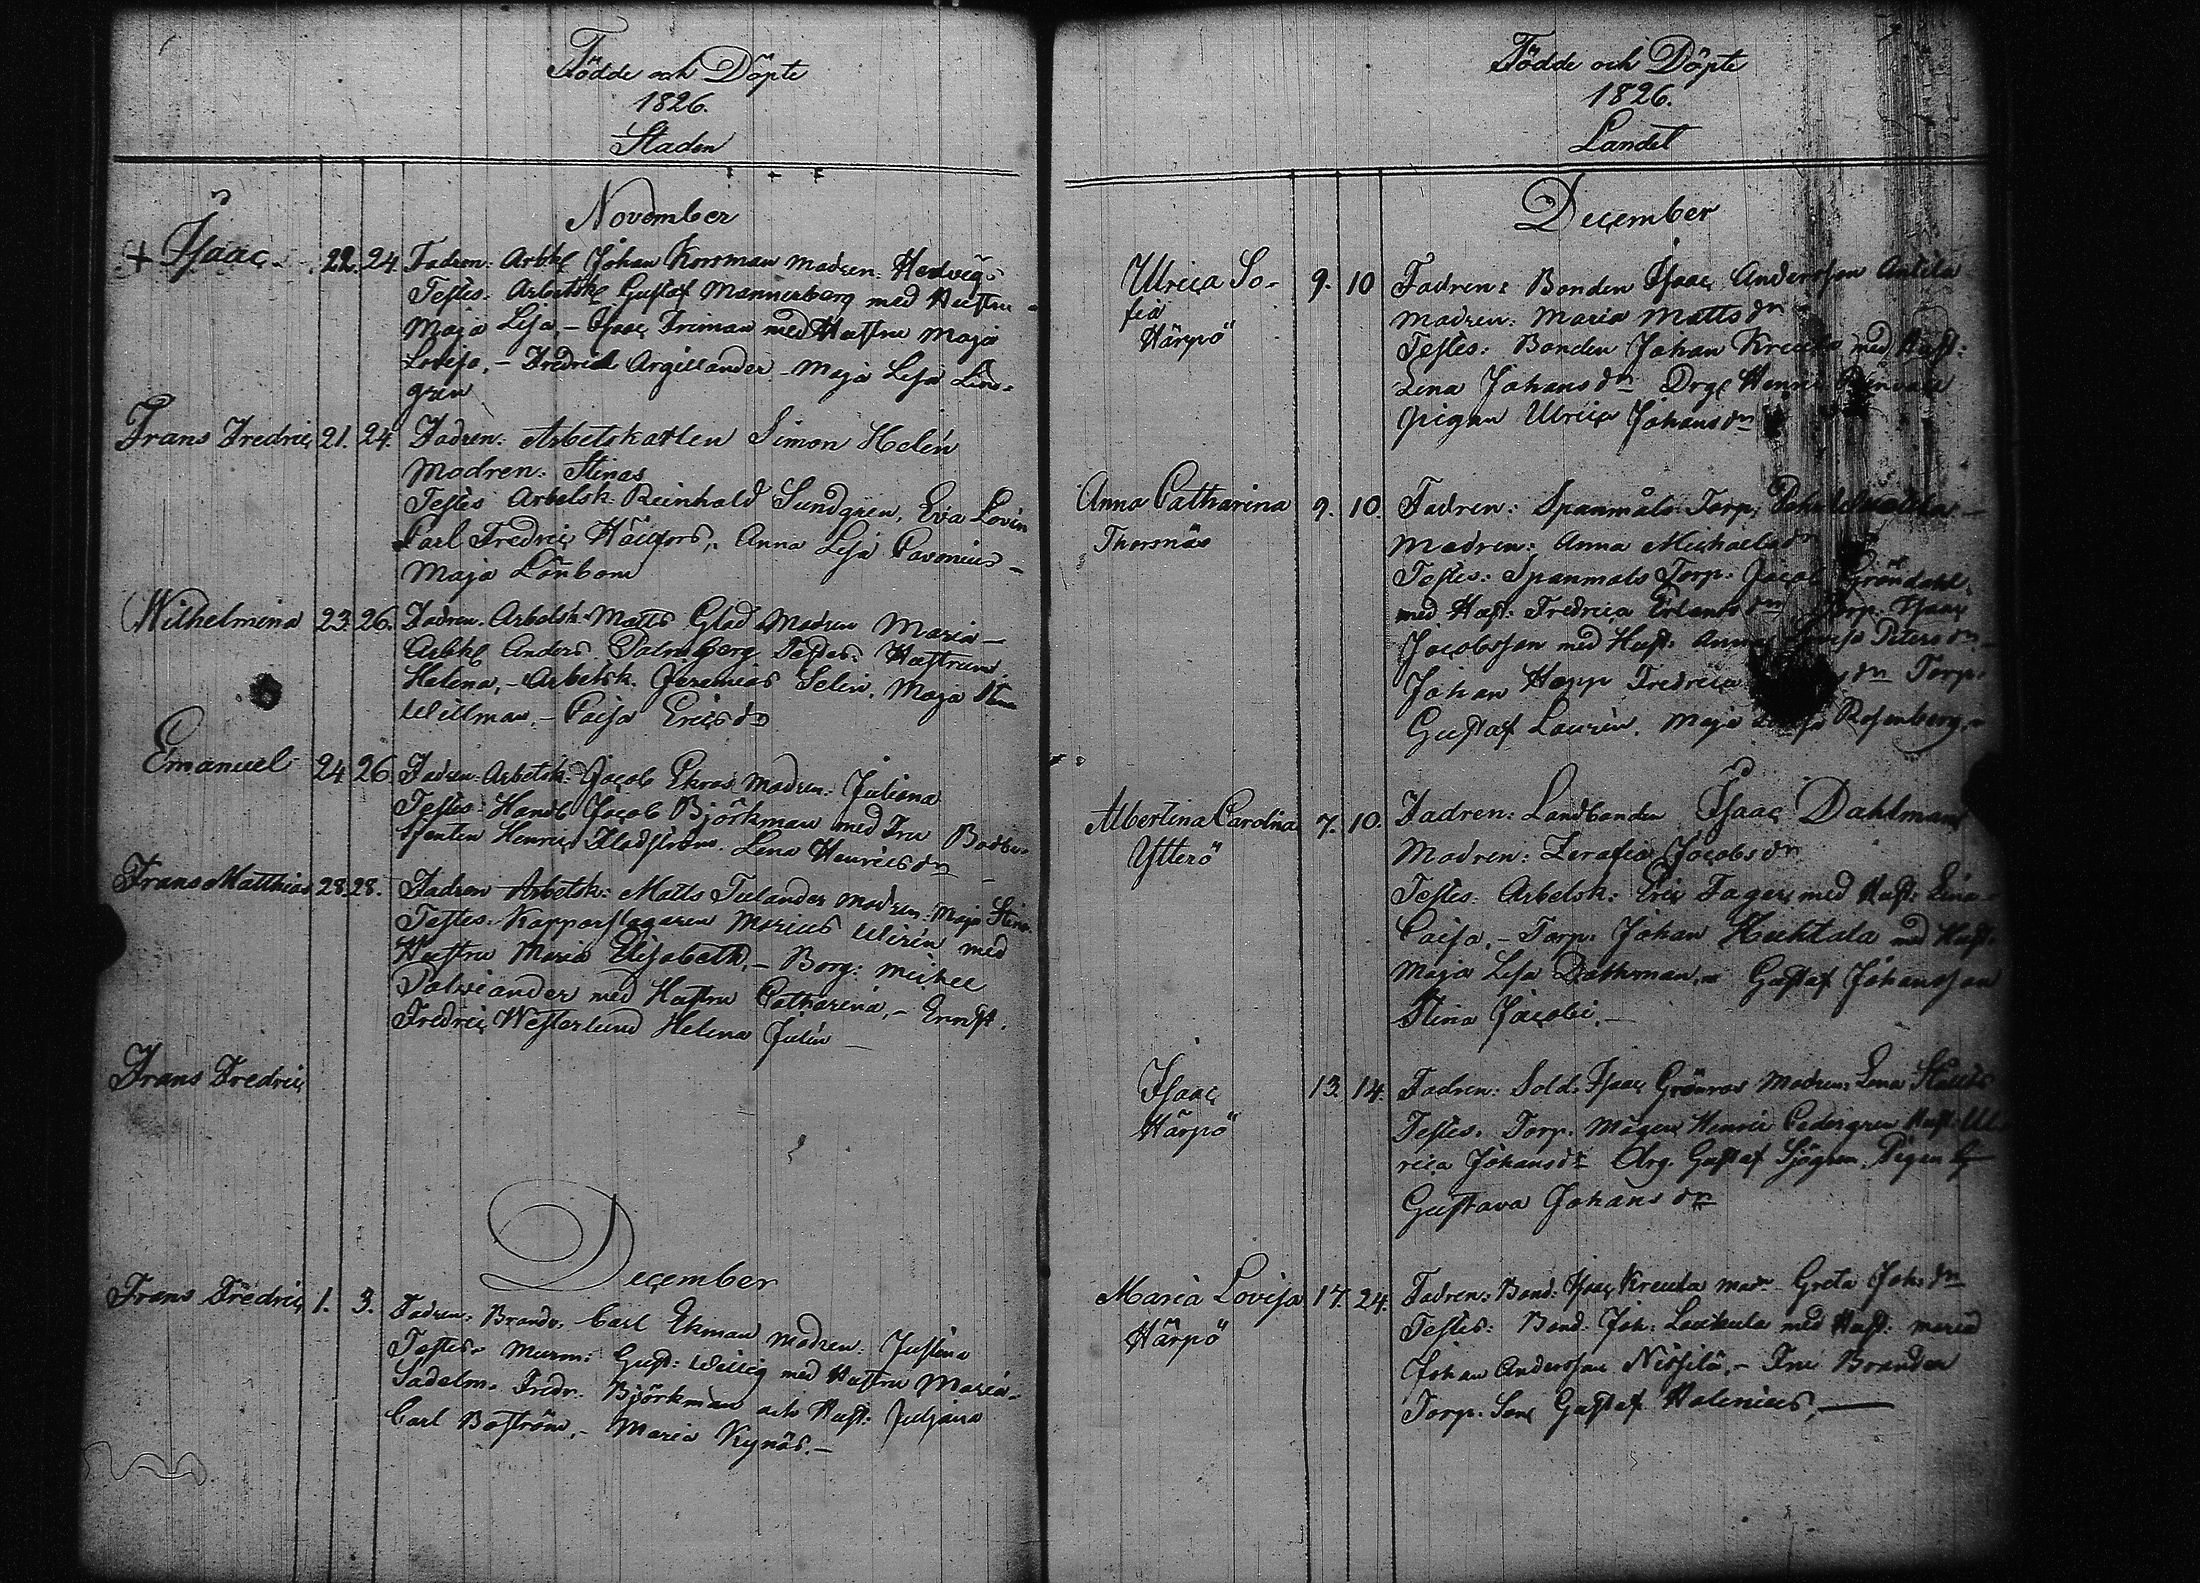 Födde och Döpte
1826.
Staden
November
+ Isaac 22. 24. Fadren: Arbk Johan Korsman modren: Hedvig
Testes: Arbetsk Gustaf Mannerberg med Hustru
Maja Lisa – Isaac Friman med Hustru Maja
Lovisa. – Fredric Argillander – Maja Lisa Lind=
gren
Frans Fredric 21. 24. Fadren: Arbetskarlen Simon Helén
Modren: Stina
Testes Arbetsk. Reinhold Sundgren, Eva Lovén
Carl Fredric Anna Lisa Pavonius –
Maja Lönbom
Wilhelmina 23. 26. Fadren. Arbetsk. Matts Glad Modren Maria –
Arbk Anders Palmberg Testes: Hustrun
Helena, – Arbetsk. Jeremias Selin. Maja Stina
Willman. – Caisa Ericsdr
Emanuel 24. 26. Fadren. Arbetsk: Jacob Ekros Modren: Juliana
Testes: Handl Jacob Björkman med Fru Bodbe=
tjenten Henric Kladström. Lena Henricsdr
Frans Matthias 28. 28. Fadren Arbetsk: Matts Tulander modren: Maja Stina
Testes: Kopparslagaren Moricus Wirén med
Hustru Maria Elisabeth, – Borg: Michel
Palviander med Hustru Catharina, – Ernst.
Fredric Westerlund Helena Julin
Frans Fredric
December
Frans Fredric 1. 3. Fadren: Brandv. Carl Ekman modren: Justina
Testes. Murm: Gust: Willig med Hustru Maria.
Sadelm. Fredr. Björkman och Hust: Juliana
Carl Boström, – Maria Kynäs. –
Födde och Döpte
1826.
Landet
December
Ulrica So- 9. 10 Fadren: Bonden Isaac Andersson Anttila
fia modren: Maria Mattsdr
Härpö Testes: Bonden Johan med Hust:
Lena Johansdr Drg Henric
pigan Ulrica Johansdr
Anna Catharina 9. 10. Fadren: Spanmåls Torp:
Thorsnäs Modren: Anna Michaelsdr
Testes: Spanmåls Torp: Jacob Gröndahl
med Hust: Fredrica Erlandsdr Torp. Isaac
Jacobsson med Hust: Anna Lovisa Petersdr
Johan Hopp Fredrica dr Torp.
Gustaf Laurin. Maja Rosenberg.
Albertina Carolina 7. 10. Fadren: Landbonden Isaac Dahlman
Ytterö Modren: Serafia Jacobsdr
Testes: Arbetsk: Eric Fager med Hust: Lina
Caisa, – Torp: Johan Huhtala med Hust:
Maja Lisa Dahlman. Gustaf Johansson
Stina Jacobi. –
Isaac 13. 14. Fadren: Sold. Isaac Grönroos Modren: Lena
Härpö Testes. Torp. Mågen Henric Cedergren Hust: Ul
rica Johansdr Drg. Gustaf Sjögren. Pigan
Gustava Johansdr
Maria Lovisa 17. 24. Fadren: Bond. Isaac Kreula modr Greta Joh:dr
Härpö Testes: Bond. Joh: Laukula med Hust: Maria
Johan Andersson Nissilä, – Fru Brander
Torp. Son Gustaf Holenius, —